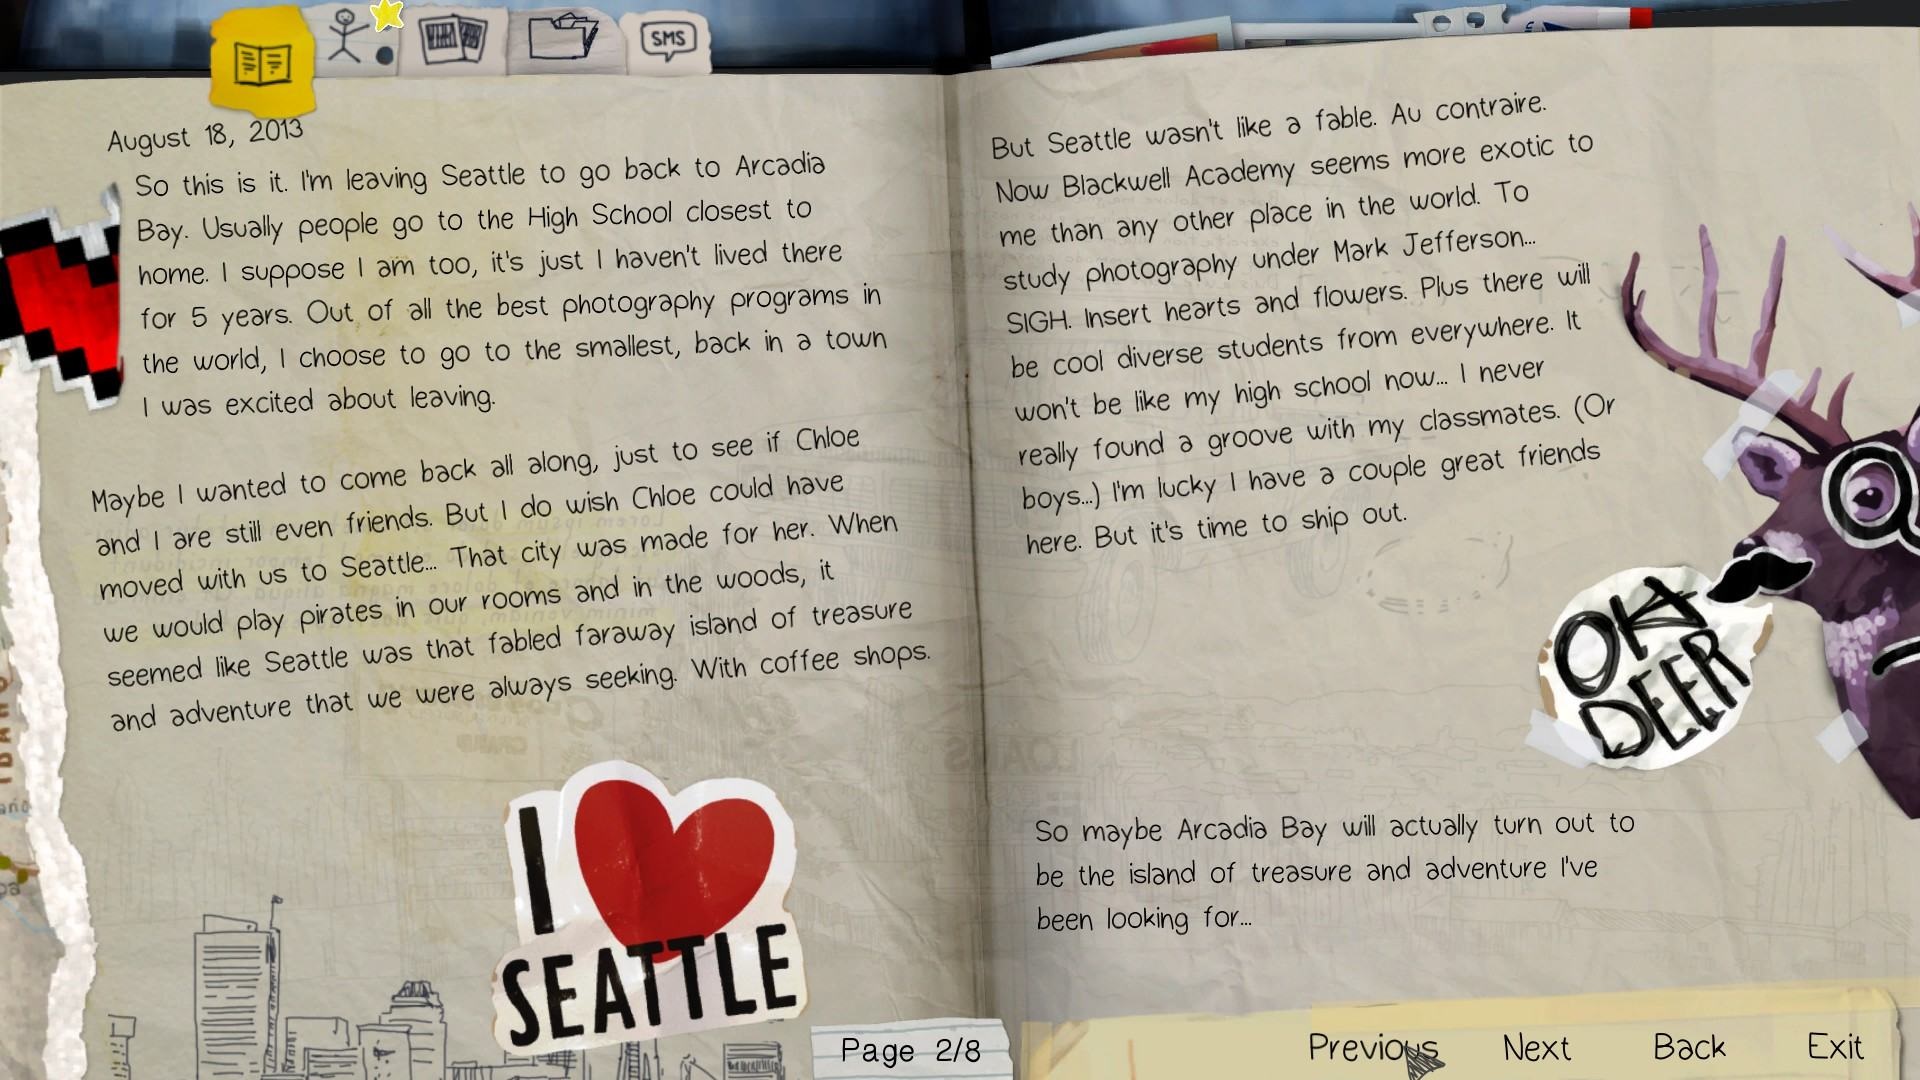 SMS
August 18, 2013
So this is it. I'm leaving Seattle to go back to Arcadia
Bay. Usually people go to the High School closest to
home. I suppose I am too, it's just I haven't lived there
for 5 years. Out of all the best photography programs in
the world, I choose to go to the smallest, back in a town
I was excited about leaving.
Maybe I wanted to come back all along, just to see if Chloe
and I are still even friends. But I do wish Chloe could have
moved with us to Seattle... That city was made for her. When
we would play pirates in our rooms and in the woods, it
seemed like Seattle was that fabled faraway island of treasure
and adventure that we were always seeking. With coffee shops.
I
SEATTLE
But Seattle wasn't like a fable. Au contraire.
Now Blackwell Academy seems more exotic to
me than any other place in the world. To
study photography under Mark Jefferson...
SIGH. Insert hearts and flowers. Plus there will
be cool diverse students from everywhere. It
won't be like my high school now... I never
really found a groove with my classmates. (Or
boys...) I'm lucky I have a couple great friends
here. But it's time to ship out.
OH
DEER
So maybe Arcadia Bay will actually turn out to
be the island of treasure and adventure I've
been looking for...
Page 2/8
Previous Next Back Exit